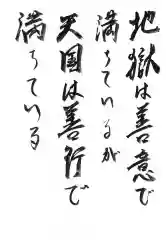 地獄は善意で
満ちているが
天国は善行で
満ちている